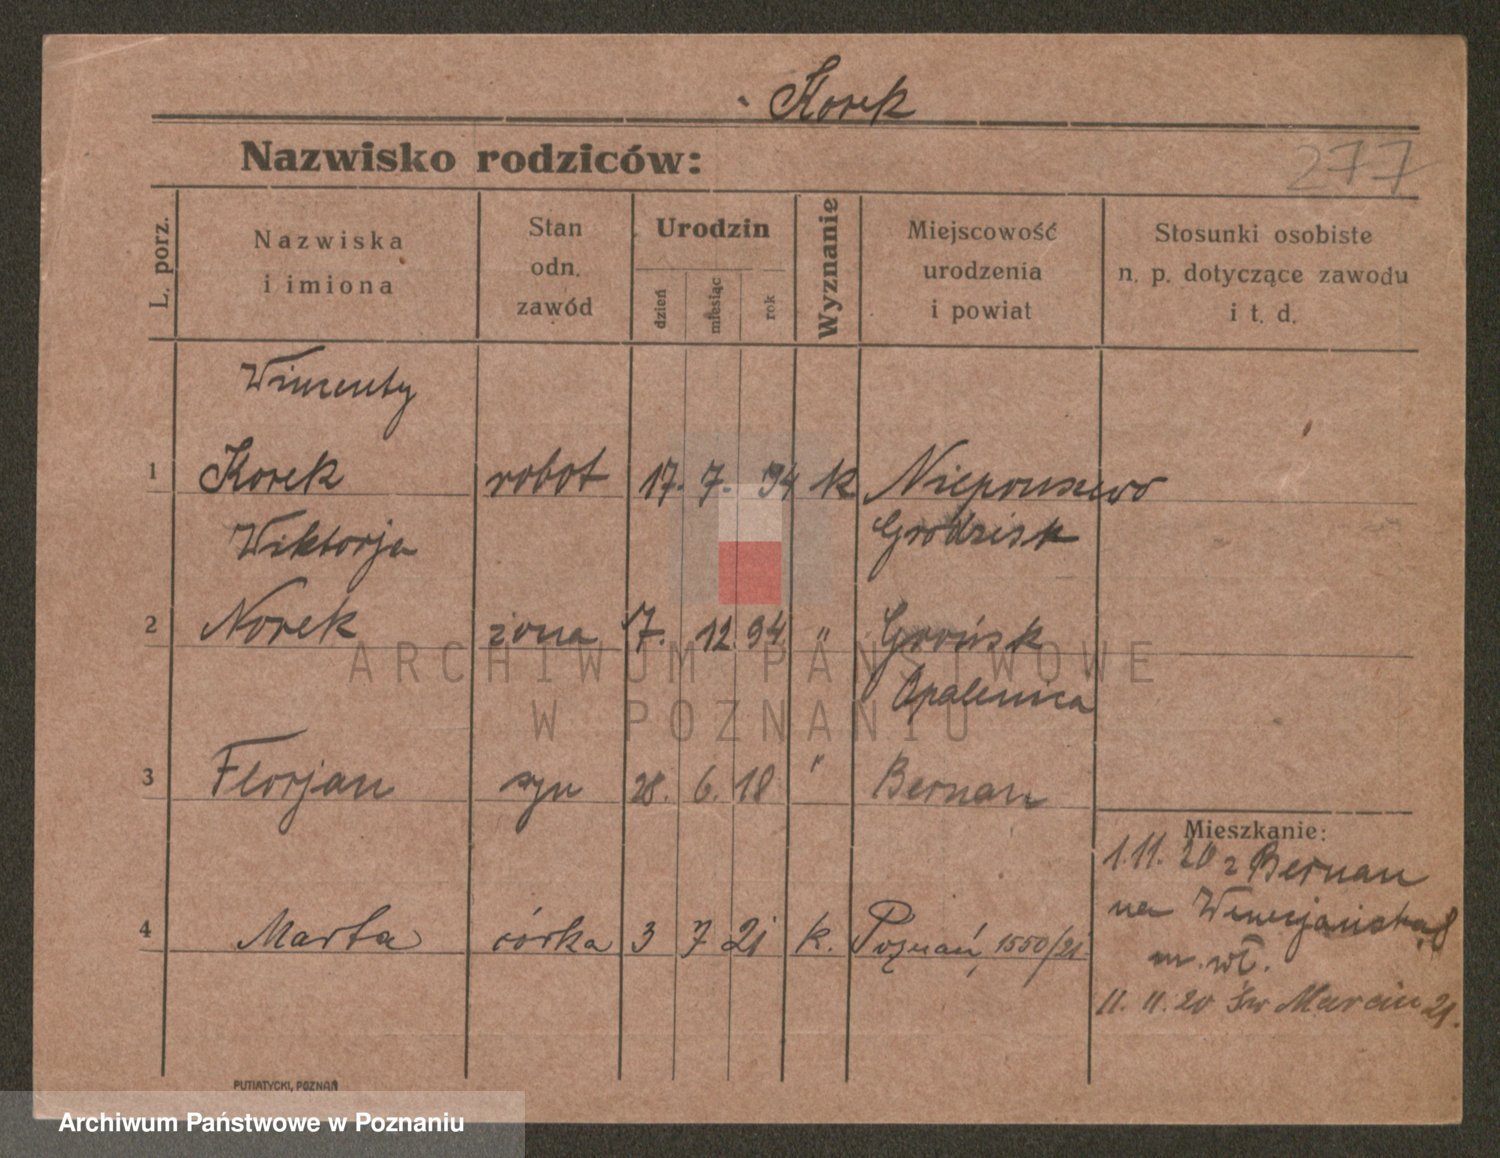 Korek
Nazwisko rodziców:
277
L. porz.
Nazwiska
i imiona
Stan
odn.
zawód
Urodzin
dzień
miesiąc
rok
Wyznanie
Miejscowość
urodzenia
i powiat
Stosunki osobiste
n. p. dotyczące zawodu
i t. d.
Wincenty
1 Korek robot 17. 7. 94 k Niepruszewo
Wiktorja Grodzisk
2 Norek żona 7. 12 94 "
Opalenica
3 Florjan syn 28. 6. 18 " Bernau
Mieszkanie:
1.11.20 z Bernau
na
4 Marta córka 3 7 21 k. Poznań, 1550/21
m. wł.
11. 11. 20 św Marcin 21.
PUTIATYCKI, POZNAŃ
ARCHIWUM PAŃSTWOWE
W POZNANIU
Archiwum Państwowe w Poznaniu